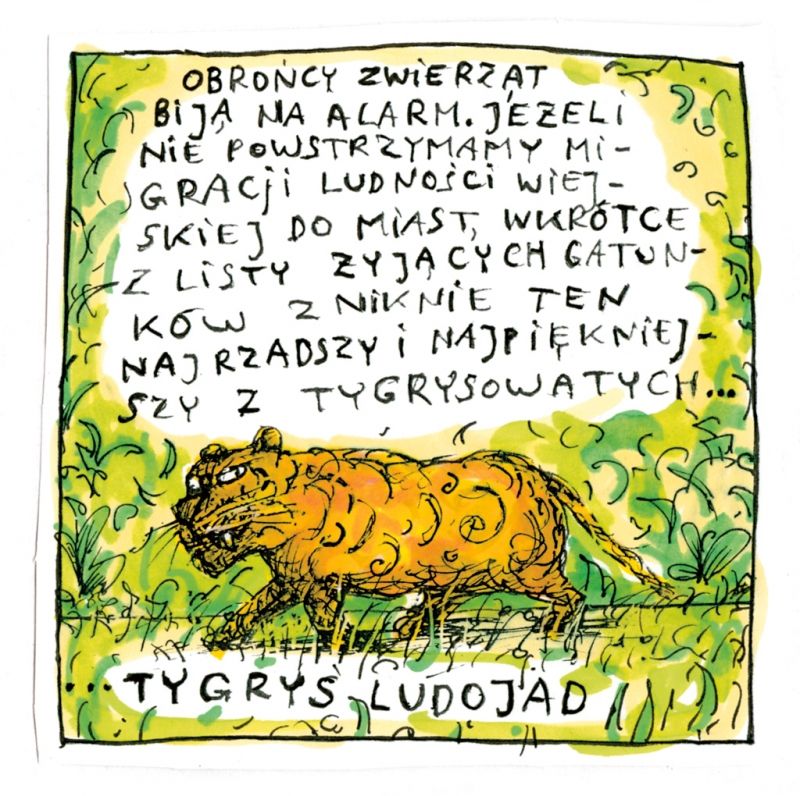 OBROŃCY ZWIERZĄT
BIJĄ NA ALARM. JEŻELI
NIE POWSTRZYMAMY MI-
GRACJI LUDNOŚCI WIEJ-
SKIEJ DO MIAST, WKRÓTCE
Z LISTY ŻYJĄCYCH GATUN-
KÓW ZNIKNIE TEN
NAJRZADSZY I NAJPIĘKNIEJ-
SZY Z TYGRYSOWATYCH...
...TYGRYS LUDOJAD